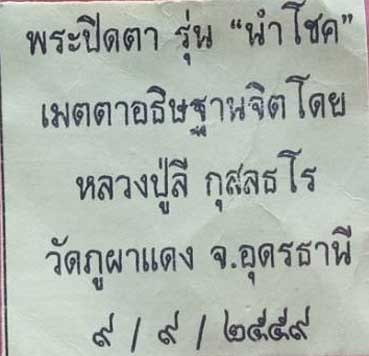 พระปิดตา รุ่น “นำโชค”
เมตตาอธิษฐานจิตโดย
หลวงปู่ลี กุสลธโร
วัดภูผาแดง จ.อุดรธานี
๙ / ๙ / ๒๕๕๙